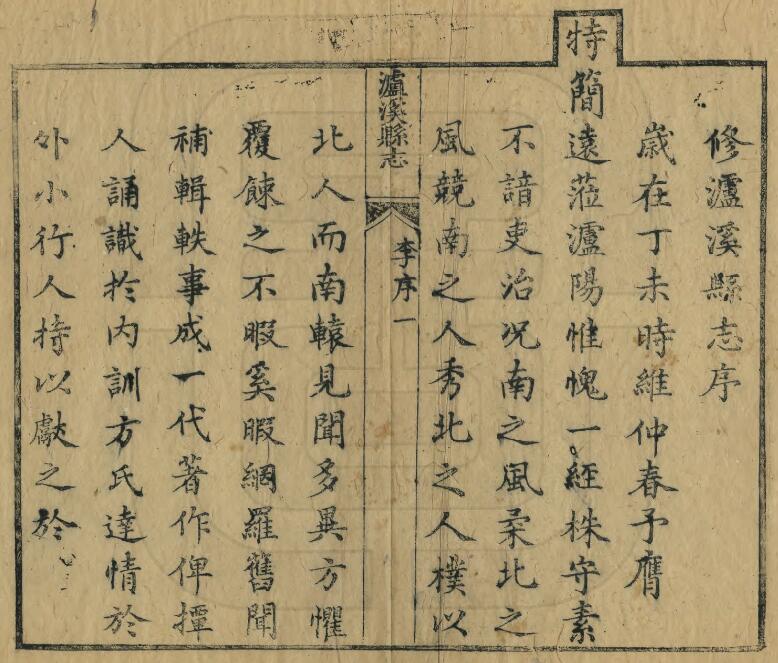 修瀘溪縣志序
歲在丁未時維仲春予膺
特簡遠蒞瀘陽惟愧一經株守素
不諳吏治况南之風柔北之
風競南之人秀北之人樸以
瀘溪縣志
李序一
北人而南轅見聞多異方懼
覆餗之不暇奚暇網羅舊聞
補輯軼事成一代著作俾擅
人誦識扵內訓方氏達情於
外小行人持以獻之於